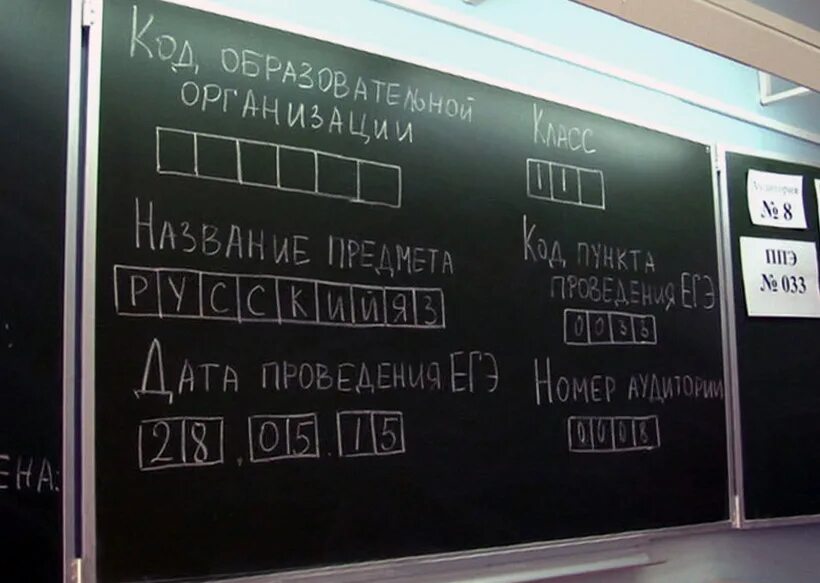 Код образовательной
организации
Класс
11
Название предмета
РУССКИЙЯЗ
Код пункта
проведения ЕГЭ
0033
Дата проведения ЕГЭ
28.05.15
Номер аудитории
0008
ЕНА:
Аудитория
№ 8
ППЭ
№ 033